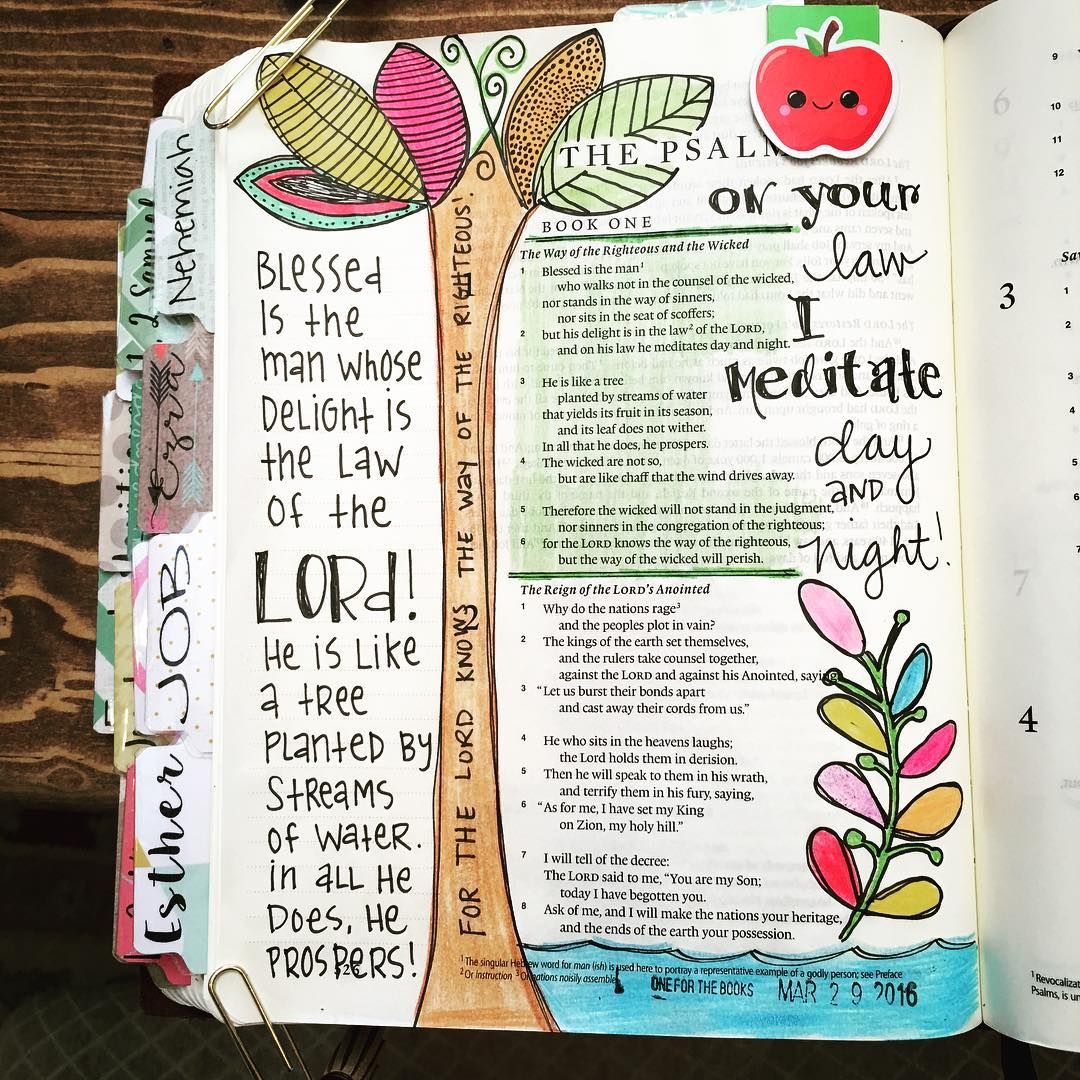 Nehemiah
2 Samuel
Ezra
JOB
Esther
Blessed
Is the
man whose
Delight is
the Law
of the
LORD!
He is Like
a tree
planted By
Streams
of water.
in all He
Does, He
PROSPERS!
FOR THE LORD KNOWS THE WAY OF THE RIGHTEOUS!
THE PSALM
BOOK ONE
on your
law
I
Meditate
day
AND
night!
The Way of the Righteous and the Wicked
1 Blessed is the man1
who walks not in the counsel of the wicked,
nor stands in the way of sinners,
nor sits in the seat of scoffers;
2 but his delight is in the law2 of the LORD,
and on his law he meditates day and night.
3 He is like a tree
planted by streams of water
that yields its fruit in its season,
and its leaf does not wither.
In all that he does, he prospers.
4 The wicked are not so,
but are like chaff that the wind drives away.
5 Therefore the wicked will not stand in the judgment,
nor sinners in the congregation of the righteous;
6 for the LORD knows the way of the righteous,
but the way of the wicked will perish.
The Reign of the LORD's Anointed
1 Why do the nations rage3
and the peoples plot in vain?
2 The kings of the earth set themselves,
and the rulers take counsel together,
against the LORD and against his Anointed, saying,
3 "Let us burst their bonds apart
and cast away their cords from us."
4 He who sits in the heavens laughs;
the Lord holds them in derision.
5 Then he will speak to them in his wrath,
and terrify them in his fury, saying,
6 "As for me, I have set my King
on Zion, my holy hill."
7 I will tell of the decree:
The LORD said to me, "You are my Son;
today I have begotten you.
8 Ask of me, and I will make the nations your heritage,
and the ends of the earth your possession.
1 The singular Hebrew word for man (ish) is used here to portray a representative example of a godly person; see Preface
2 Or instruction 3 Or nations noisily assemble
ONE FOR THE BOOKS MAR 29 2016
9
10
11
12
3
1
2
3
4
5
6
7
4
1 Revocalizat
Psalms, is un